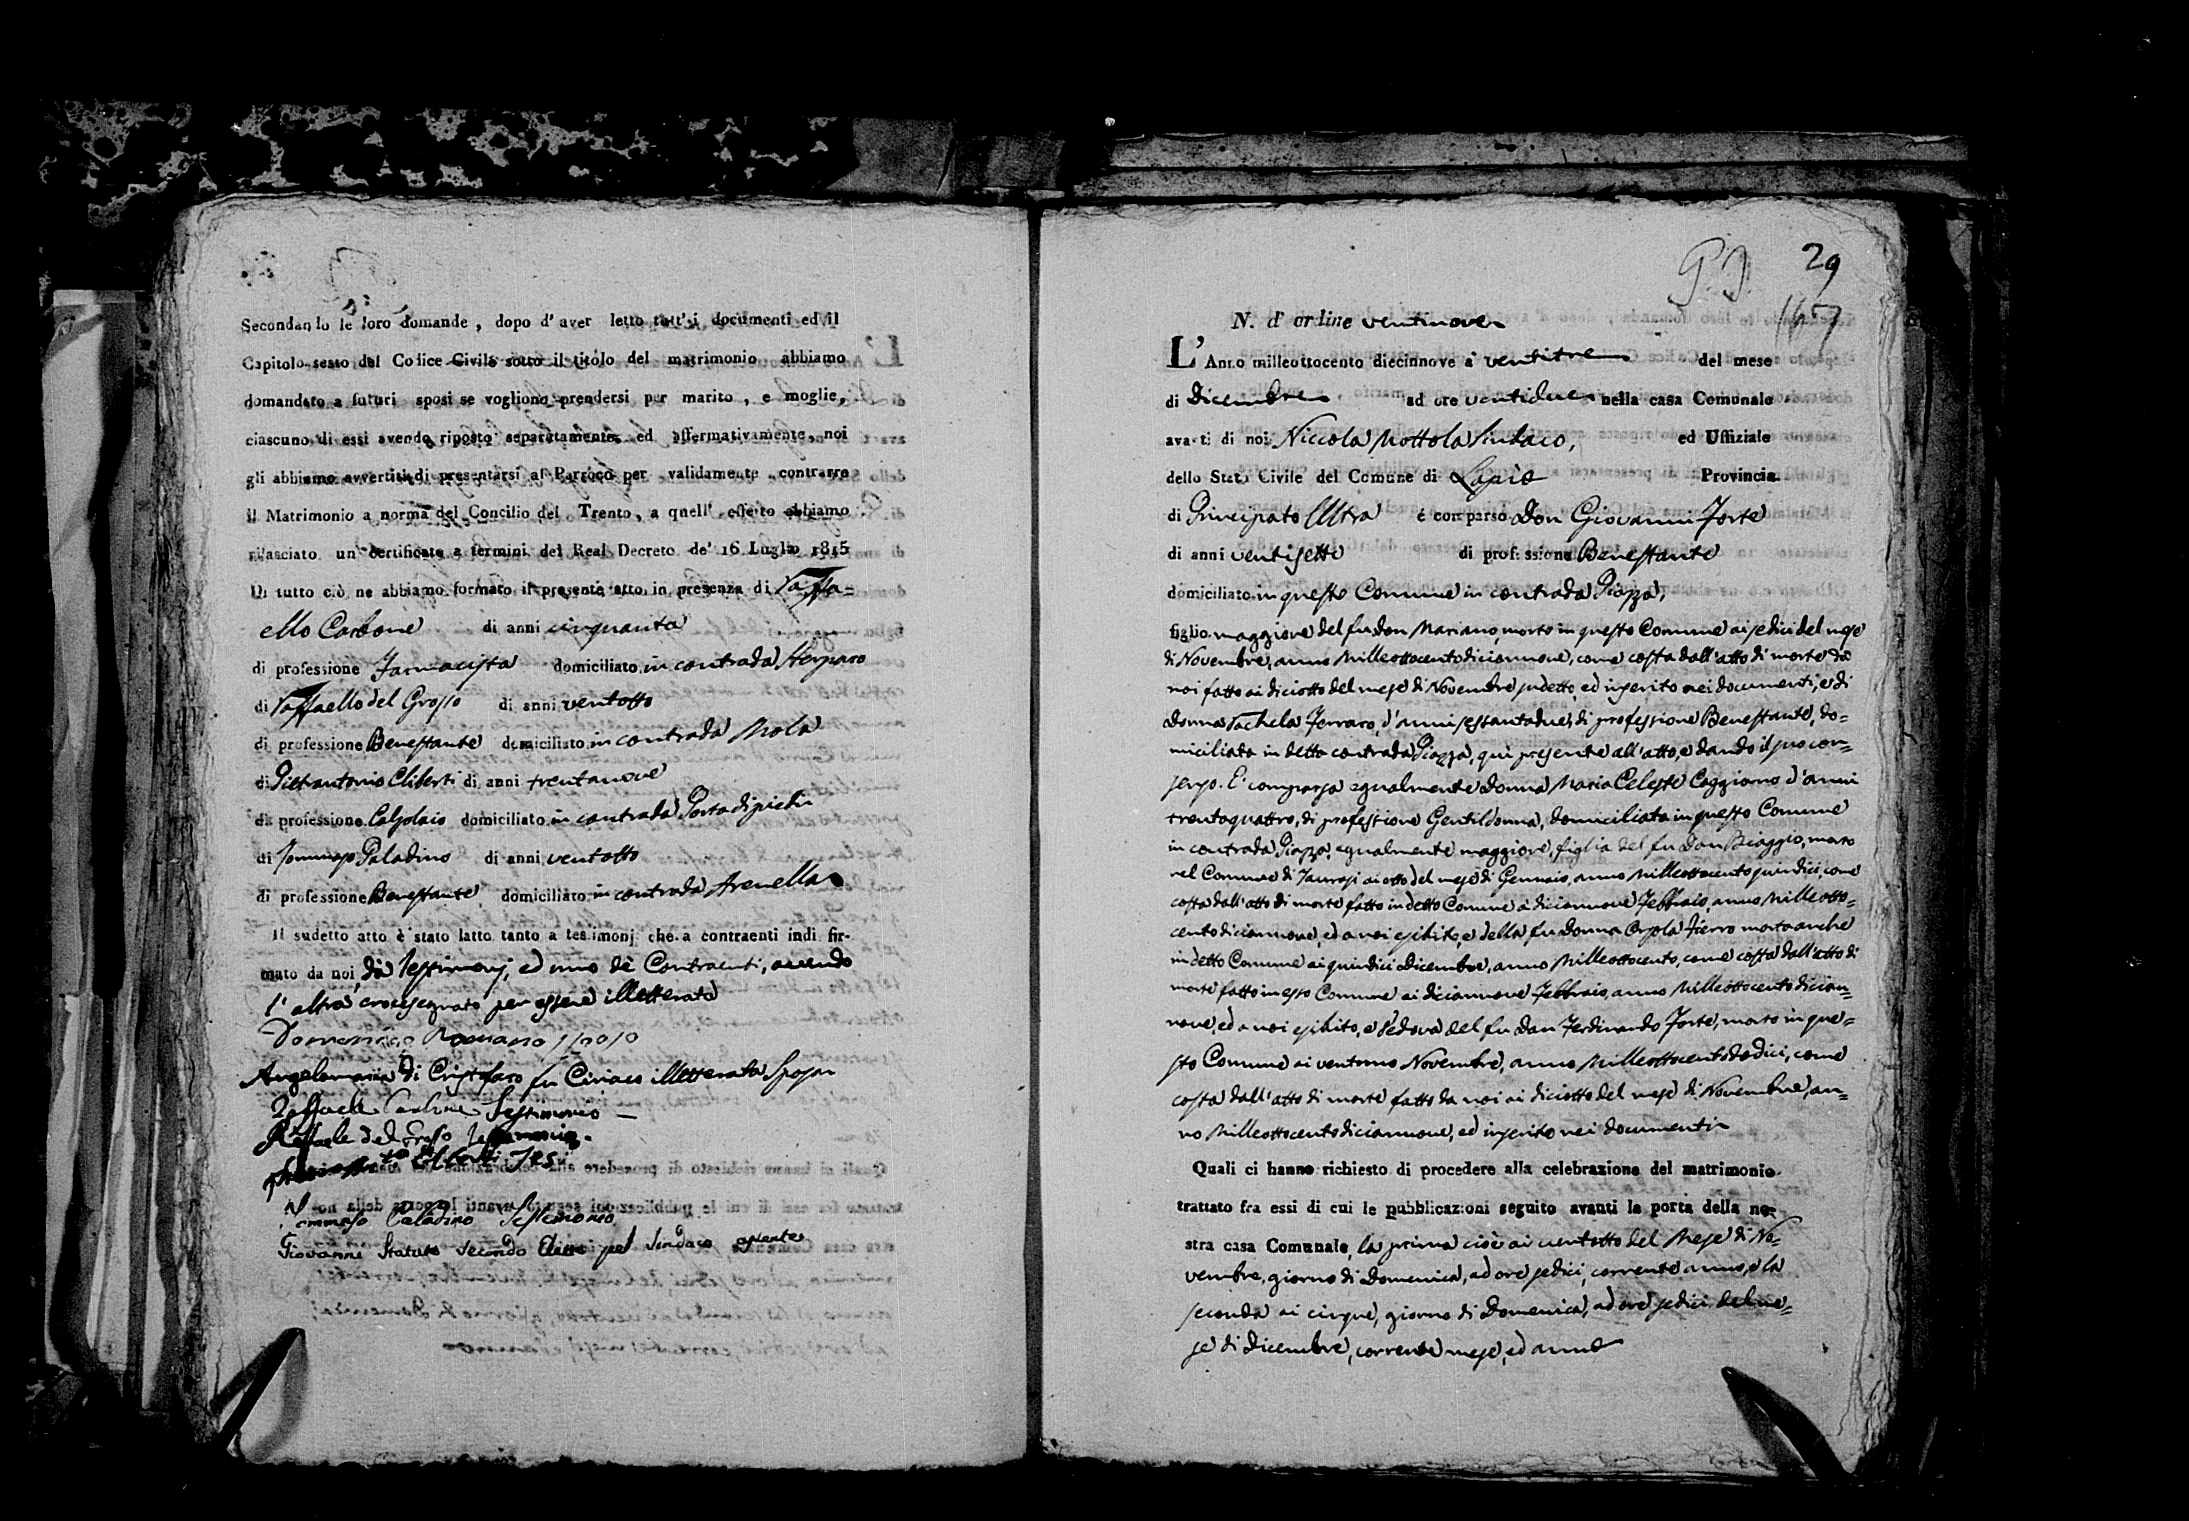 Secondando le loro domande, dopo d'aver letto tutt'i documenti ed il
Capitolo sesto del Codice Civile sotto il titolo del matrimonio abbiamo
domandato a futuri sposi se vogliono prendersi per marito, e moglie,
ciascuno di essi avendo riposto separatamente, ed affermativamente, noi
gli abbiamo avvertiti di presentarsi al Parroco per validamente contrarre
il Matrimonio a norma del Concilio del Trento, a quell'effetto abbiamo
rilasciato un certificato a termini del Real Decreto de' 16 Luglio 1815
Di tutto ciò ne abbiamo formato il presente atto in presenza di Raffa=
ello Carbone di anni cinquanta
di professione Farmacista domiciliato in contrada
di Raffaello del Grosso di anni ventotto
di professione Benestante domiciliato in contrada Mola
di Pietrantonio Cliberti di anni trentanove
di professione Calzolaio domiciliato in contrada Porta di piedi
di Tommaso Paladino di anni ventotto
di professione Benestante domiciliato in contrada Arenella
Il sudetto atto è stato latto tanto a testimonj che a contraenti indi fir-
mato da noi, dà Testimonj, ed uno dè Contraenti, avendo
l'altra crocesegnato per essere illetterata
Domenico Romano sposo
Angelamaria di Cristofaro fu Ciriaco illetterata Sposa
Raffaele Carbone Testimonio
Raffaele del Grosso Testimonio
Tommaso Paladino Testimonio
Giovanni Statuto Secondo Eletto pel Sindaco
P. I. 29
167
N. d'ordine ventinove
L'Anno milleottocento diecinnove a' ventitre del mese
di Dicembre ad ore ventidue nella casa Comunale
avanti di noi Niccola Mottola Sindaco, ed Uffiziale
dello Stato Civile del Comune di Lapio Provincia
di Principato Ultra è comparso Don Giovanni Forte
di anni ventisette di professione Benestante
domiciliato in questo Comune in contrada Piazza,
figlio maggiore del fu don Mariano, morto in questo Comune ai sedici del mese
di Novembre, anno Milleottocentodiciannove, come costa dall'atto di morte da
noi fatto ai diciotto del mese di Novembre sudetto, ed inserito nei documenti, e di
Donna Rachela Ferraro, d'anni sessantadue, di professione Benestante, do=
miciliata in detta contrada Piazza, qui presente all'atto, e dando il suo con=
senso. E' comparsa egualmente Donna Maria Celeste Caggiano d'anni
trentaquattro, di professione Gentildonna, domiciliata in questo Comune
in contrada Piazza, egualmente maggiore, figlia del fu Don Biaggio, morto
nel Comune di Taurasi ai otto del mese di Gennaio, anno Milleottocentoquindici, come
costa dall'atto di morte fatto in detto Comune a diciannove Febbraio, anno Milleotto=
centodiciannove, ed a noi esibito, e della fu Donna Orsola Fierro morta anche
in detto Comune ai quindici Dicembre, anno Milleottocento, come costa dall'atto di
morte fatto in esso Comune ai diciannove Febbraio, anno Milleottocentodician=
nove, ed a noi esibito, e Vedova del fu Don Ferdinando Forte, morto in que=
sto Comune ai ventuno Novembre, anno Milleottocentododici, come
costa dall'atto di morte fatto da noi ai diciotto del mese di Novembre, an=
no Milleottocentodiciannove, ed inserito nei documenti
Quali ci hanno richiesto di procedere alla celebrazione del matrimonio
trattato fra essi di cui le pubblicazioni seguito avanti la porta della no-
stra casa Comunale, la prima cioè ai ventotto del Mese di No=
vembre, giorno di Domenica, ad ore sedici, corrente anno, e la
seconda ai cinque, giorno di Domenica, ad ore sedici del me=
se di Dicembre, corrente mese, ed anno